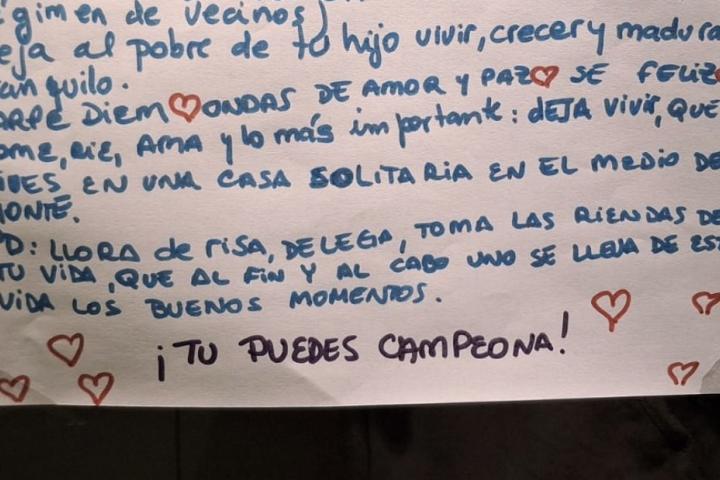 égimen de vecinos)
eja al pobre de tu hijo vivir, crecer y madura
anquilo.
ARPE DIEM ONDAS DE AMOR Y PAZ SE FELIZ
OME, RIE, AMA y lo más importante: DEJA Vivir, QUE
IVES EN UNA CASA SOLITARIA EN EL MEDIO DE
MONTE.
PD: LLORA de risa, DELEGA, TOMA LAS RIENDAS DE
TU VIDA, QUE AL FIN Y AL CABO UNO SE LLEVA DE EST
VIDA LOS BUENOS MOMENTOS.
¡TU PUEDES CAMPEONA!